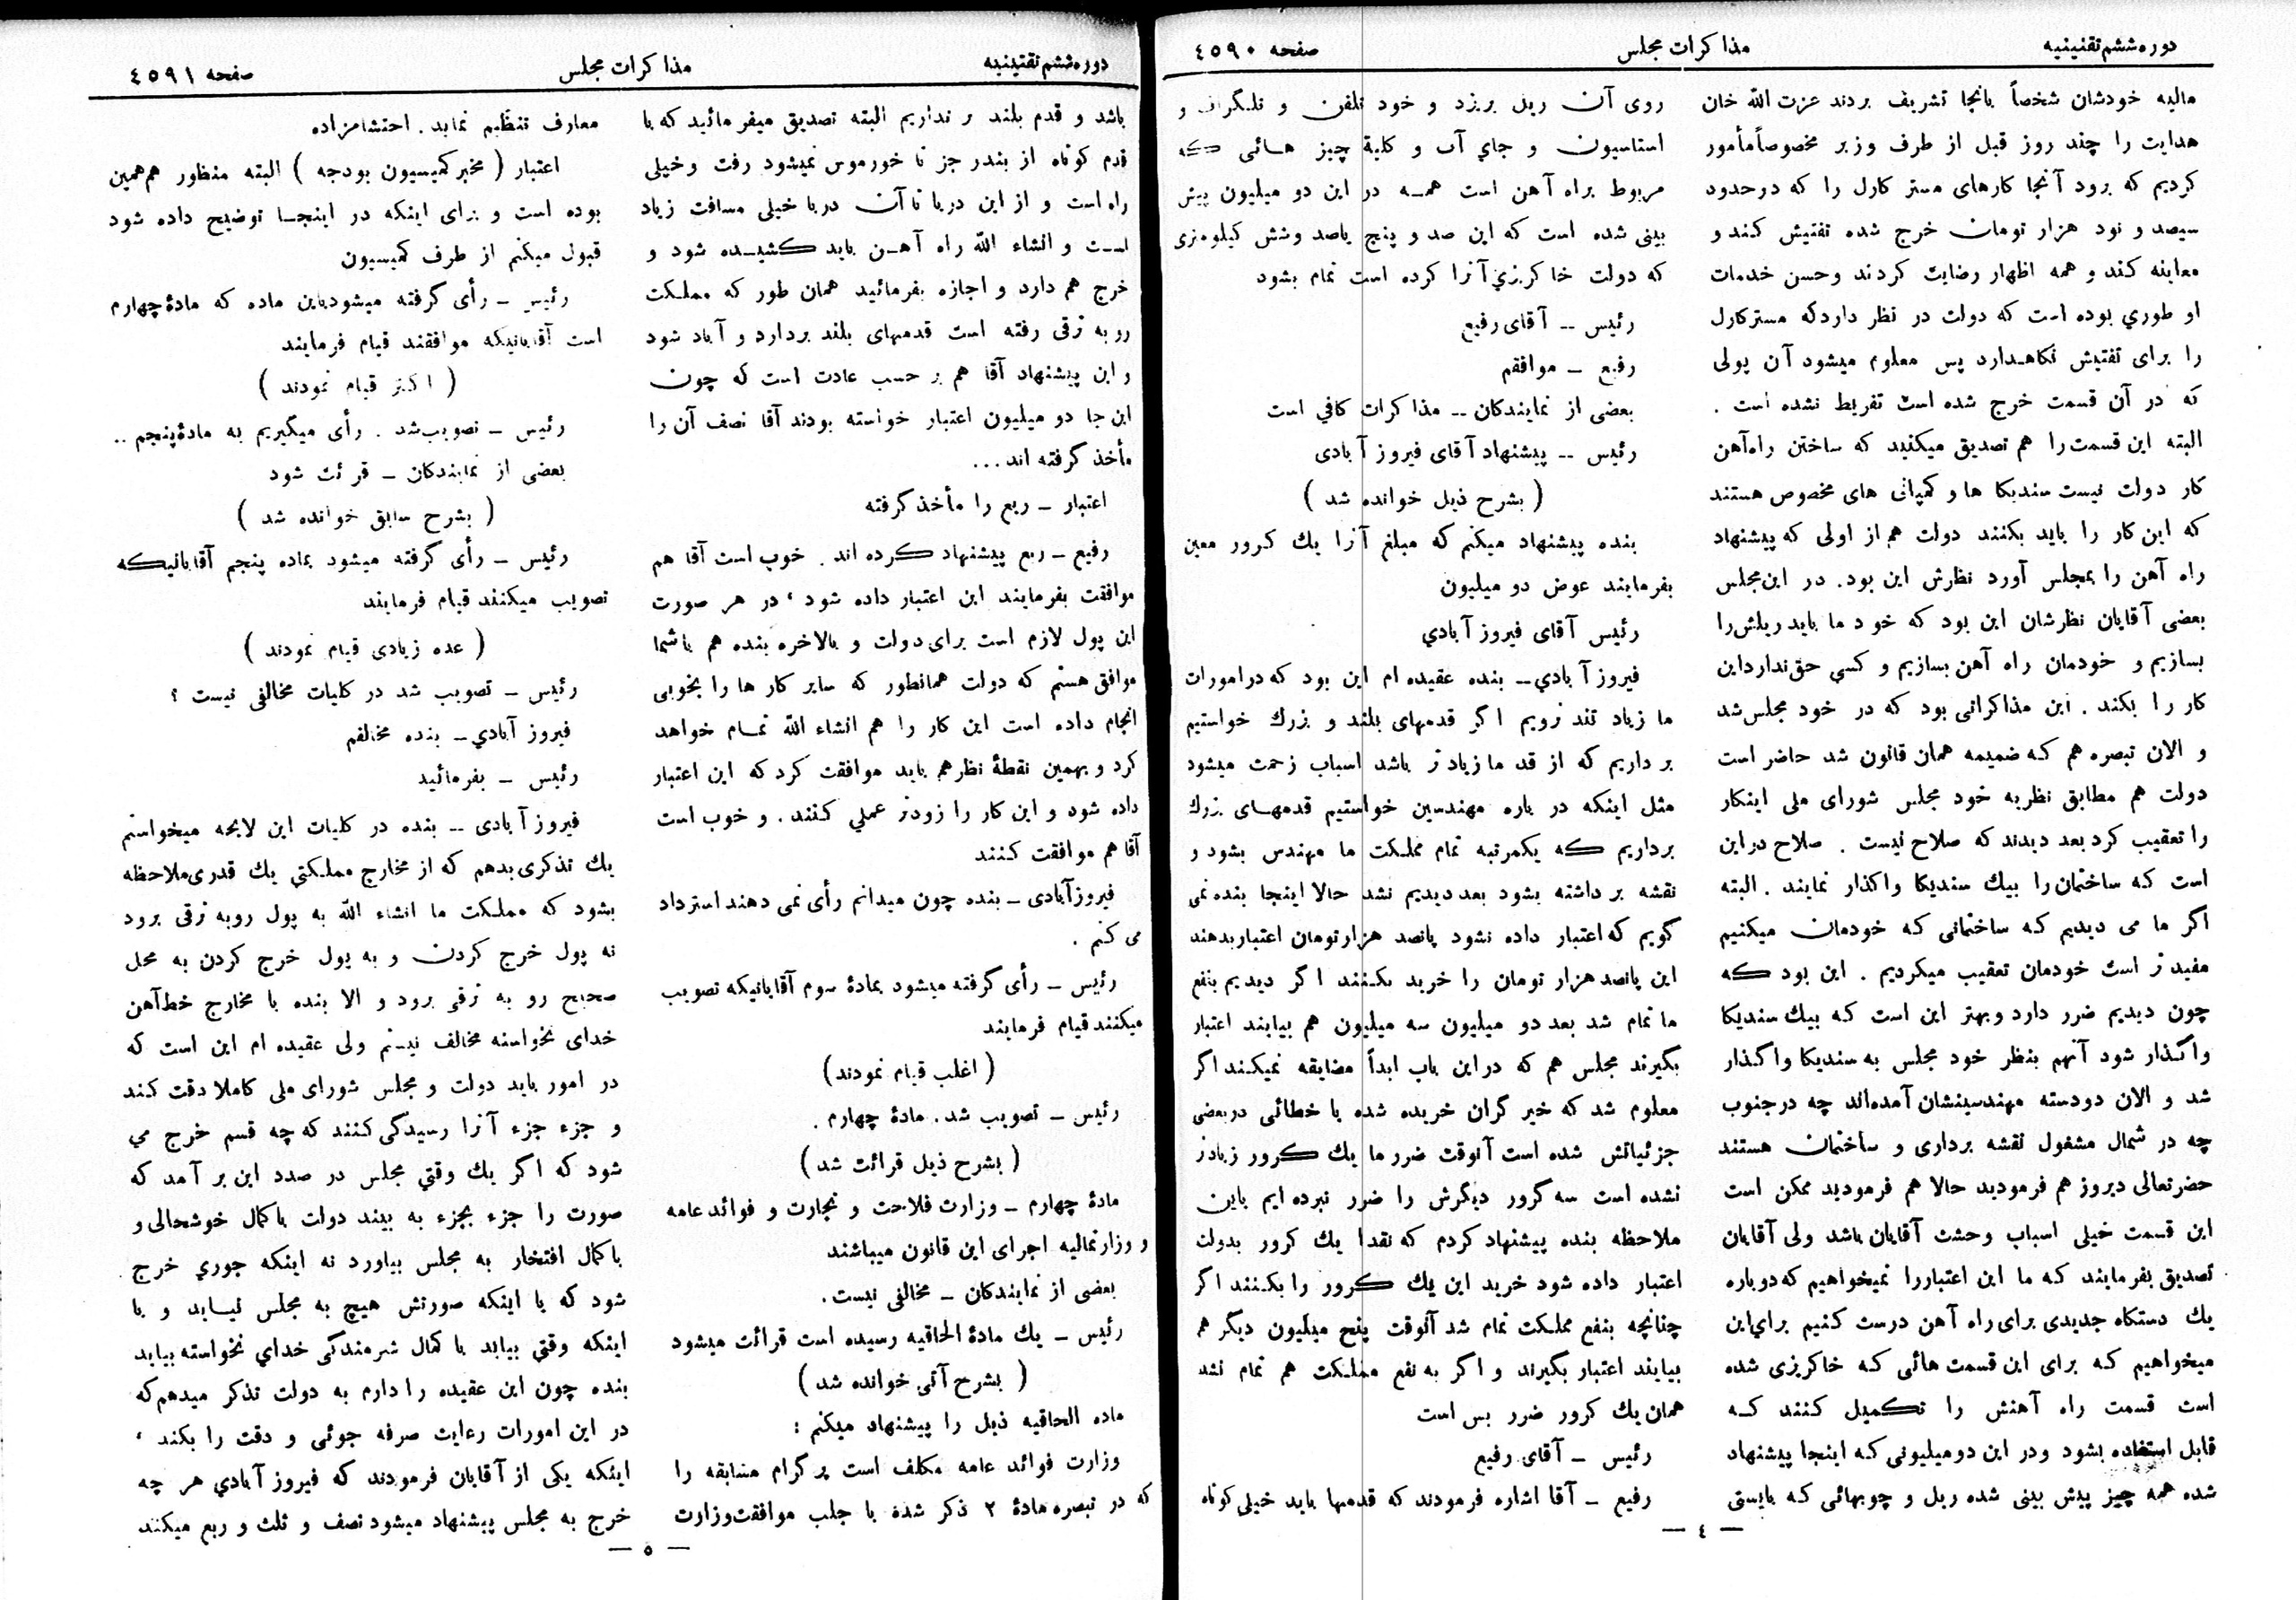 دوره ششم تقنینیه
مذاکرات مجلس
صفحه ٤٥٩٠
مالیه خودشان شخصاً بانجا تشریف بردند عزت الله خان
هدایت را چند روز قبل از طرف وزیر مخصوصاً مأمور
کردیم که برود آنجا کارهای مستر کارل را که در حدود
سیصد و نود هزار تومان خرج شده تفتیش کند و
معاینه کند و همه اظهار رضایت کردند وحسن خدمات
او طوری بوده است که دولت در نظر دارد که مستر کارل
را برای تفتیش نگاهدارد پس معلوم میشود آن پولی
که در آن قسمت خرج شده است تفریط نشده است .
البته این قسمت را هم تصدیق میکنید که ساختن راه آهن
کار دولت نیست سندیکا ها و کمپانی های مخصوص هستند
که این کار را باید بکنند دولت هم از اولی که پیشنهاد
راه آهن را بمجلس آورد نظرش این بود. در این مجلس
بعضی آقایان نظرشان این بود که خود ما باید ریلش را
بسازیم و خودمان راه آهن بسازیم و کسی حق ندارد این
کار را بکند . این مذاکراتی بود که در خود مجلس شد
و الان تبصره هم که ضمیمه همان قانون شد حاضر است
دولت هم مطابق نظریه خود مجلس شورای ملی اینکار
را تعقیب کرد بعد دیدند که صلاح نیست . صلاح در این
است که ساختمان را بیك سندیکا واگذار نمایند . البته
اگر ما می دیدیم که ساختمانی که خودمان میکنیم
مفید تر است خودمان تعقیب میکردیم . این بود که
چون دیدیم ضرر دارد وبهتر این است که بیك سندیکا
واگذار شود آنهم بنظر خود مجلس به سندیکا واگذار
شد و الان دودسته مهندسینشان آمده‌اند چه در جنوب
چه در شمال مشغول نقشه برداری و ساختمان هستند
حضرتعالی دیروز هم فرمودید حالا هم فرمودید ممکن است
این قسمت خیلی اسباب وحشت آقایان باشد ولی آقایان
تصدیق بفرمایند که ما این اعتبار را نمیخواهیم که دوباره
یك دستگاه جدیدی برای راه آهن درست کنیم برای این
میخواهیم که برای این قسمت هائی که خاکریزی شده
است قسمت راه آهنش را تکمیل کنند که
قابل استفاده بشود ودر این دو میلیونی که اینجا پیشنهاد
شده همه چیز پیش بینی شده ریل و چوبهائی که بایستی
روی آن ریل بریزد و خود تلفن و تلگراف و
استاسیون و جای آب و کلیهٔ چیز هائی که
مربوط براه آهن است همه در این دو میلیون پیش
بینی شده است که این صد و پنج یاصد وشش کیلومتری
که دولت خاکریزی آنرا کرده است تمام بشود
رئیس -- آقای رفیع
رفیع - موافقم
بعضی از نمایندگان -- مذاکرات کافی است
رئیس -- پیشنهاد آقای فیروز آبادی
( بشرح ذیل خوانده شد )
بنده پیشنهاد میکنم که مبلغ آنرا یك کرور معین
بفرمایند عوض دو میلیون
رئیس آقای فیروز آبادی
فیروز آبادی -- بنده عقیده ام این بود که در امورات
ما زیاد تند نرویم اگر قدمهای بلند و بزرك خواستیم
بر داریم که از قد ما زیاد تر باشد اسباب زحمت میشود
مثل اینکه در باره مهندسین خواستیم قدمهای بزرك
برداریم که یکمرتبه تمام مملکت ما مهندس بشود و
نقشه بر داشته بشود بعد دیدیم نشد حالا اینجا بنده نمی
گویم که اعتبار داده نشود پانصد هزار تومان اعتبار بدهند
این پانصد هزار تومان را خرید بکنند اگر دیدیم بنفع
ما تمام شد بعد دو میلیون سه میلیون هم بیایند اعتبار
بگیرند مجلس هم که در این باب ابداً مضایقه نمیکند اگر
معلوم شد که خیر گران خریده شده یا خطائی در بعضی
جزئیاتش شده است آنوقت ضرر ما یك کرور زیادتر
نشده است سه کرور دیگرش را ضرر نبرده ایم باین
ملاحظه بنده پیشنهاد کردم که نقدا یك کرور بدولت
اعتبار داده شود خرید این یك کرور را بکنند اگر
چنانچه بنفع مملکت تمام شد آنوقت پنج میلیون دیگر هم
بیایند اعتبار بگیرند و اگر به نفع مملکت هم تمام نشد
همان یك کرور ضرر بس است
رئیس - آقای رفیع
رفیع - آقا اشاره فرمودند که قدمها باید خیلی کوتاه
— ٤ —
دوره ششم تقنینیه
مذاکرات مجلس
صفحه ٤٥٩١
باشد و قدم بلند بر نداریم البته تصدیق میفرمائید که با
قدم کوتاه از بندر جز تا خورموسی نمیشود رفت وخیلی
راه است و از این دریا تا آن دریا خیلی مسافت زیاد
است و انشاء الله راه آهن باید کشیده شود و
خرج هم دارد و اجازه بفرمائید همان طور که مملکت
رو به ترقی رفته است قدمهای بلند بردارد و آباد شود
و این پیشنهاد آقا هم بر حسب عادت است که چون
این جا دو میلیون اعتبار خواسته بودند آقا نصف آن را
مأخذ گرفته اند...
اعتبار - ربع را مأخذ گرفته
رفیع - ربع پیشنهاد کرده اند . خوب است آقا هم
موافقت بفرمایند این اعتبار داده شود ، در هر صورت
این پول لازم است برای دولت و بالاخره بنده هم باشما
موافق هستم که دولت همانطور که سایر کار ها را بخوبی
انجام داده است این کار را هم انشاء الله تمام خواهد
کرد و بهمین نقطهٔ نظر هم باید موافقت کرد که این اعتبار
داده شود و این کار را زودتر عملی کنند . و خوب است
آقا هم موافقت کنند
فیروزآبادی - بنده چون میدانم رأی نمی دهند استرداد
می کنم .
رئیس - رأی گرفته میشود بمادهٔ سوم آقایانیکه تصویب
میکنند قیام فرمایند
(اغلب قیام نمودند)
رئیس - تصویب شد . مادهٔ چهارم .
( بشرح ذیل قرائت شد )
مادهٔ چهارم - وزارت فلاحت و تجارت و فوائد عامه
و وزارتمالیه اجرای این قانون میباشند
بعضی از نمایندگان - مخالفی نیست .
رئیس - یك مادهٔ الحاقیه رسیده است قرائت میشود
( بشرح آتی خوانده شد )
ماده الحاقیه ذیل را پیشنهاد میکنم :
وزارت فوائد عامه مکلف است پرگرام مسابقه را
که در تبصره مادهٔ ٢ ذکر شده با جلب موافقت وزارت
معارف تنظیم نماید . احتشامزاده
اعتبار ( مخبر کمیسیون بودجه ) البته منظور هم همین
بوده است و برای اینکه در اینجا توضیح داده شود
قبول میکنم از طرف کمیسیون
رئیس - رأی گرفته میشود باین ماده که مادهٔ چهارم
است آقایانیکه موافقند قیام فرمایند
( اکثر قیام نمودند )
رئیس - تصویب شد . رأی میگیریم به مادهٔ پنجم ..
بعضی از نمایندگان - قرائت شود
( بشرح سابق خوانده شد )
رئیس - رأی گرفته میشود بماده پنجم آقایانیکه
تصویب میکنند قیام فرمایند
( عده زیادی قیام نمودند )
رئیس - تصویب شد در کلیات مخالفی نیست ؟
فیروز آبادی - بنده مخالفم
رئیس - بفرمائید
فیروز آبادی -- بنده در کلیات این لایحه میخواستم
یك تذکری بدهم که از مخارج مملکتی یك قدری ملاحظه
بشود که مملکت ما انشاء الله به پول روبه ترقی برود
نه پول خرج کردن و به پول خرج کردن به محل
صحیح رو به ترقی برود و الا بنده با مخارج خط آهن
خدای نخواسته مخالف نیستم ولی عقیده ام این است که
در امور باید دولت و مجلس شورای ملی کاملا دقت کند
و جزء جزء آنرا رسیدگی کنند که چه قسم خرج می
شود که اگر یك وقتی مجلس در صدد این بر آمد که
صورت را جزء بجزء به بیند دولت باکمال خوشحالی و
باکمال افتخار به مجلس بیاورد نه اینکه جوری خرج
شود که یا اینکه صورتش هیچ به مجلس نیاید و یا
اینکه وقتی بیاید با کمال شرمندگی خدای نخواسته بیاید
بنده چون این عقیده را دارم به دولت تذکر میدهم که
در این امورات رعایت صرفه جوئی و دقت را بکند ،
اینکه یکی از آقایان فرمودند که فیروز آبادی هر چه
خرج به مجلس پیشنهاد میشود نصف و ثلث و ربع میکند
— ٥ —